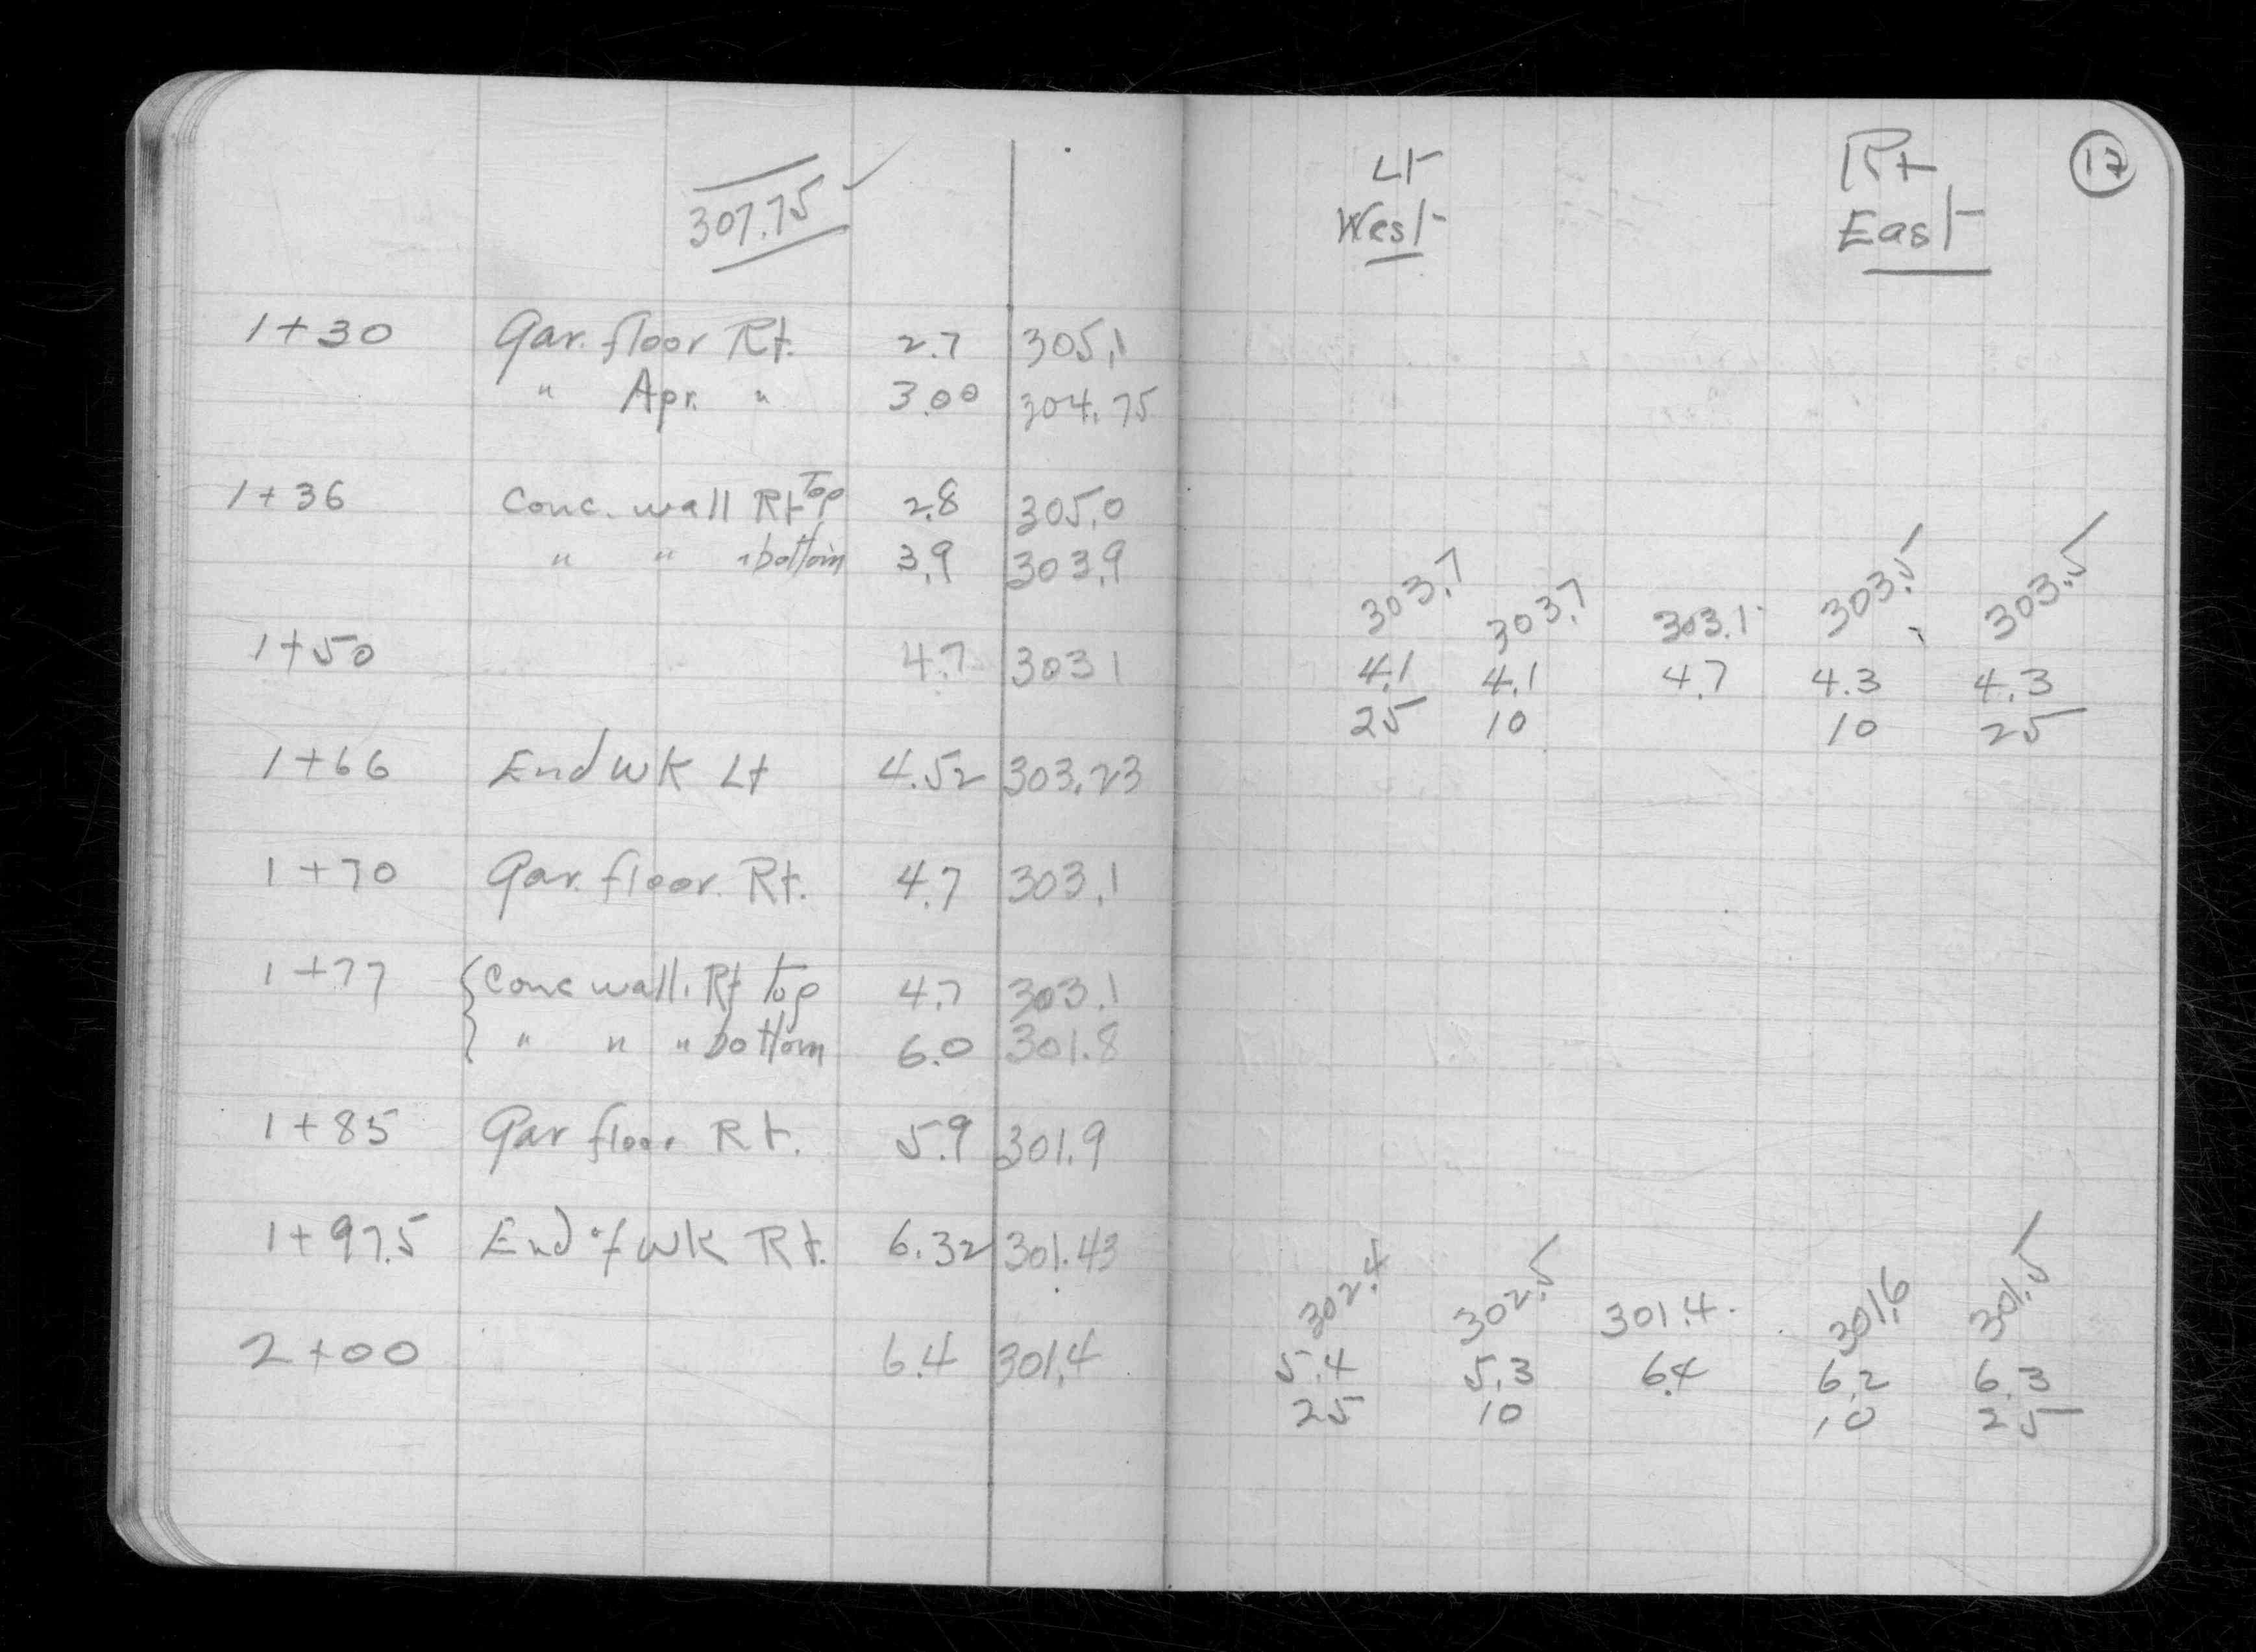 307.75 ✓
1+30 Gar. floor Rt. 2.7 305.1
" Apr. " 3.00 304.75
1+36 Conc. wall Rt Top 2.8 305.0
" " " bottom 3.9 303.9
1+50 4.7 303 1
1+66 End Wk Lt 4.52 303.23
1+70 Gar. floor. Rt. 4.7 303.1
1+77 Conc wall. Rt Top 4.7 303.1
" " " bottom 6.0 301.8
1+85 Gar floor Rt. 5.9 301.9
1+97.5 End of Wk Rt. 6.32 301.43
2+00 6.4 301.4
17
Lt Rt
West East
303.7 303.7 303.1 303.5 303.5
4.1 4.1 4.7 4.3 4.3
25 10 10 25
302.4 302.5 301.4. 301.6 301.5
5.4 5.3 6.4 6.2 6.3
25 10 10 25